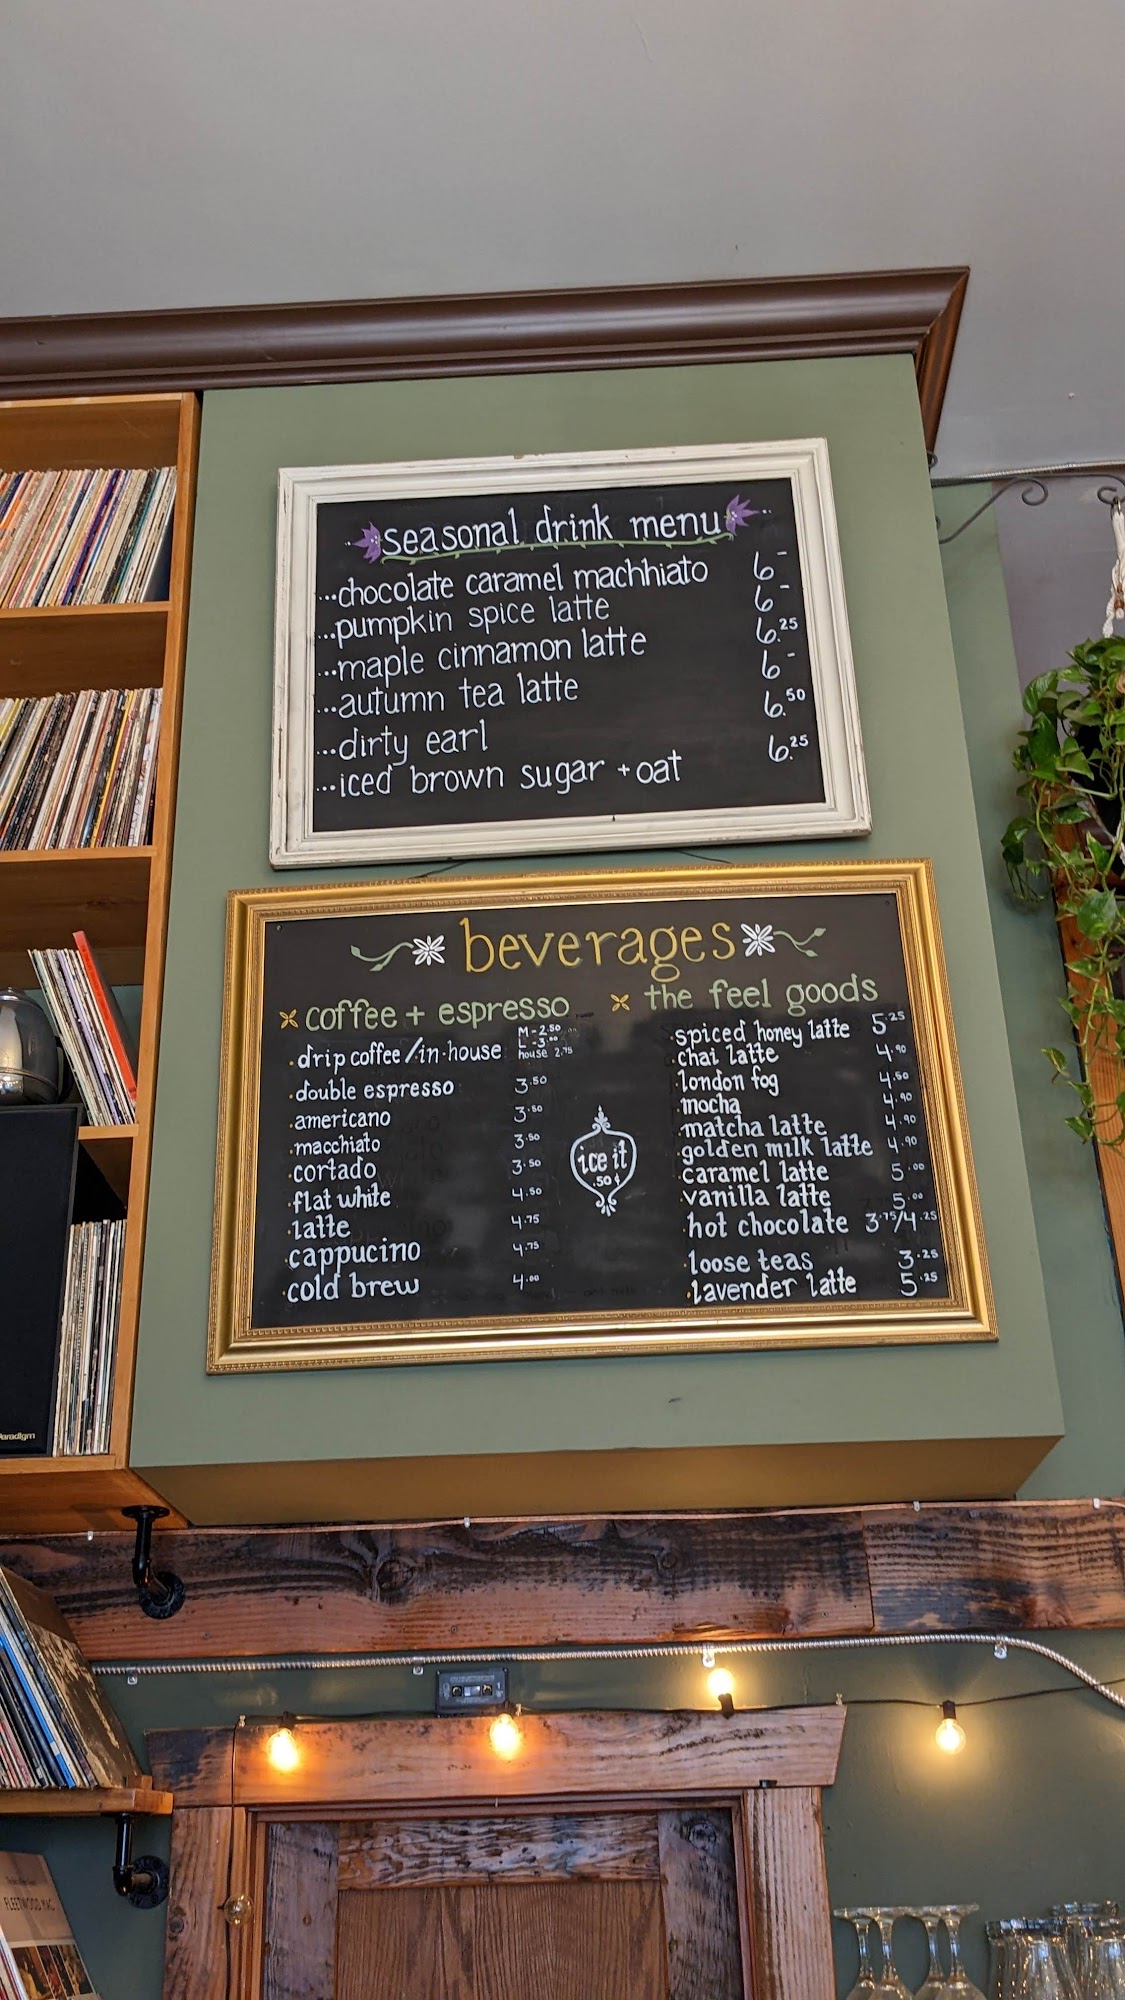 seasonal drink menu
...chocolate caramel machhiato 6-
...pumpkin spice latte 6-
...maple cinnamon latte 6.25
...autumn tea latte 6-
...dirty earl 6.50
...iced brown sugar + oat 6.25
beverages
coffee + espresso
M - 2.50
L - 3.00
·drip coffee/in-house house 2.75
·double espresso 3.50
·americano 3.50
·macchiato 3.50
·cortado 3.50
·flat white 4.50
·latte 4.75
·cappucino 4.75
·cold brew 4.00
ice it
.50¢
the feel goods
·spiced honey latte 5.25
·chai latte 4.90
·london fog 4.50
·mocha 4.90
·matcha latte 4.90
·golden milk latte 4.90
·caramel latte 5.00
·vanilla latte 5.00
·hot chocolate 3.75/4.25
·loose teas 3.25
·lavender latte 5.25
Paradigm
FLEETWOOD MAC